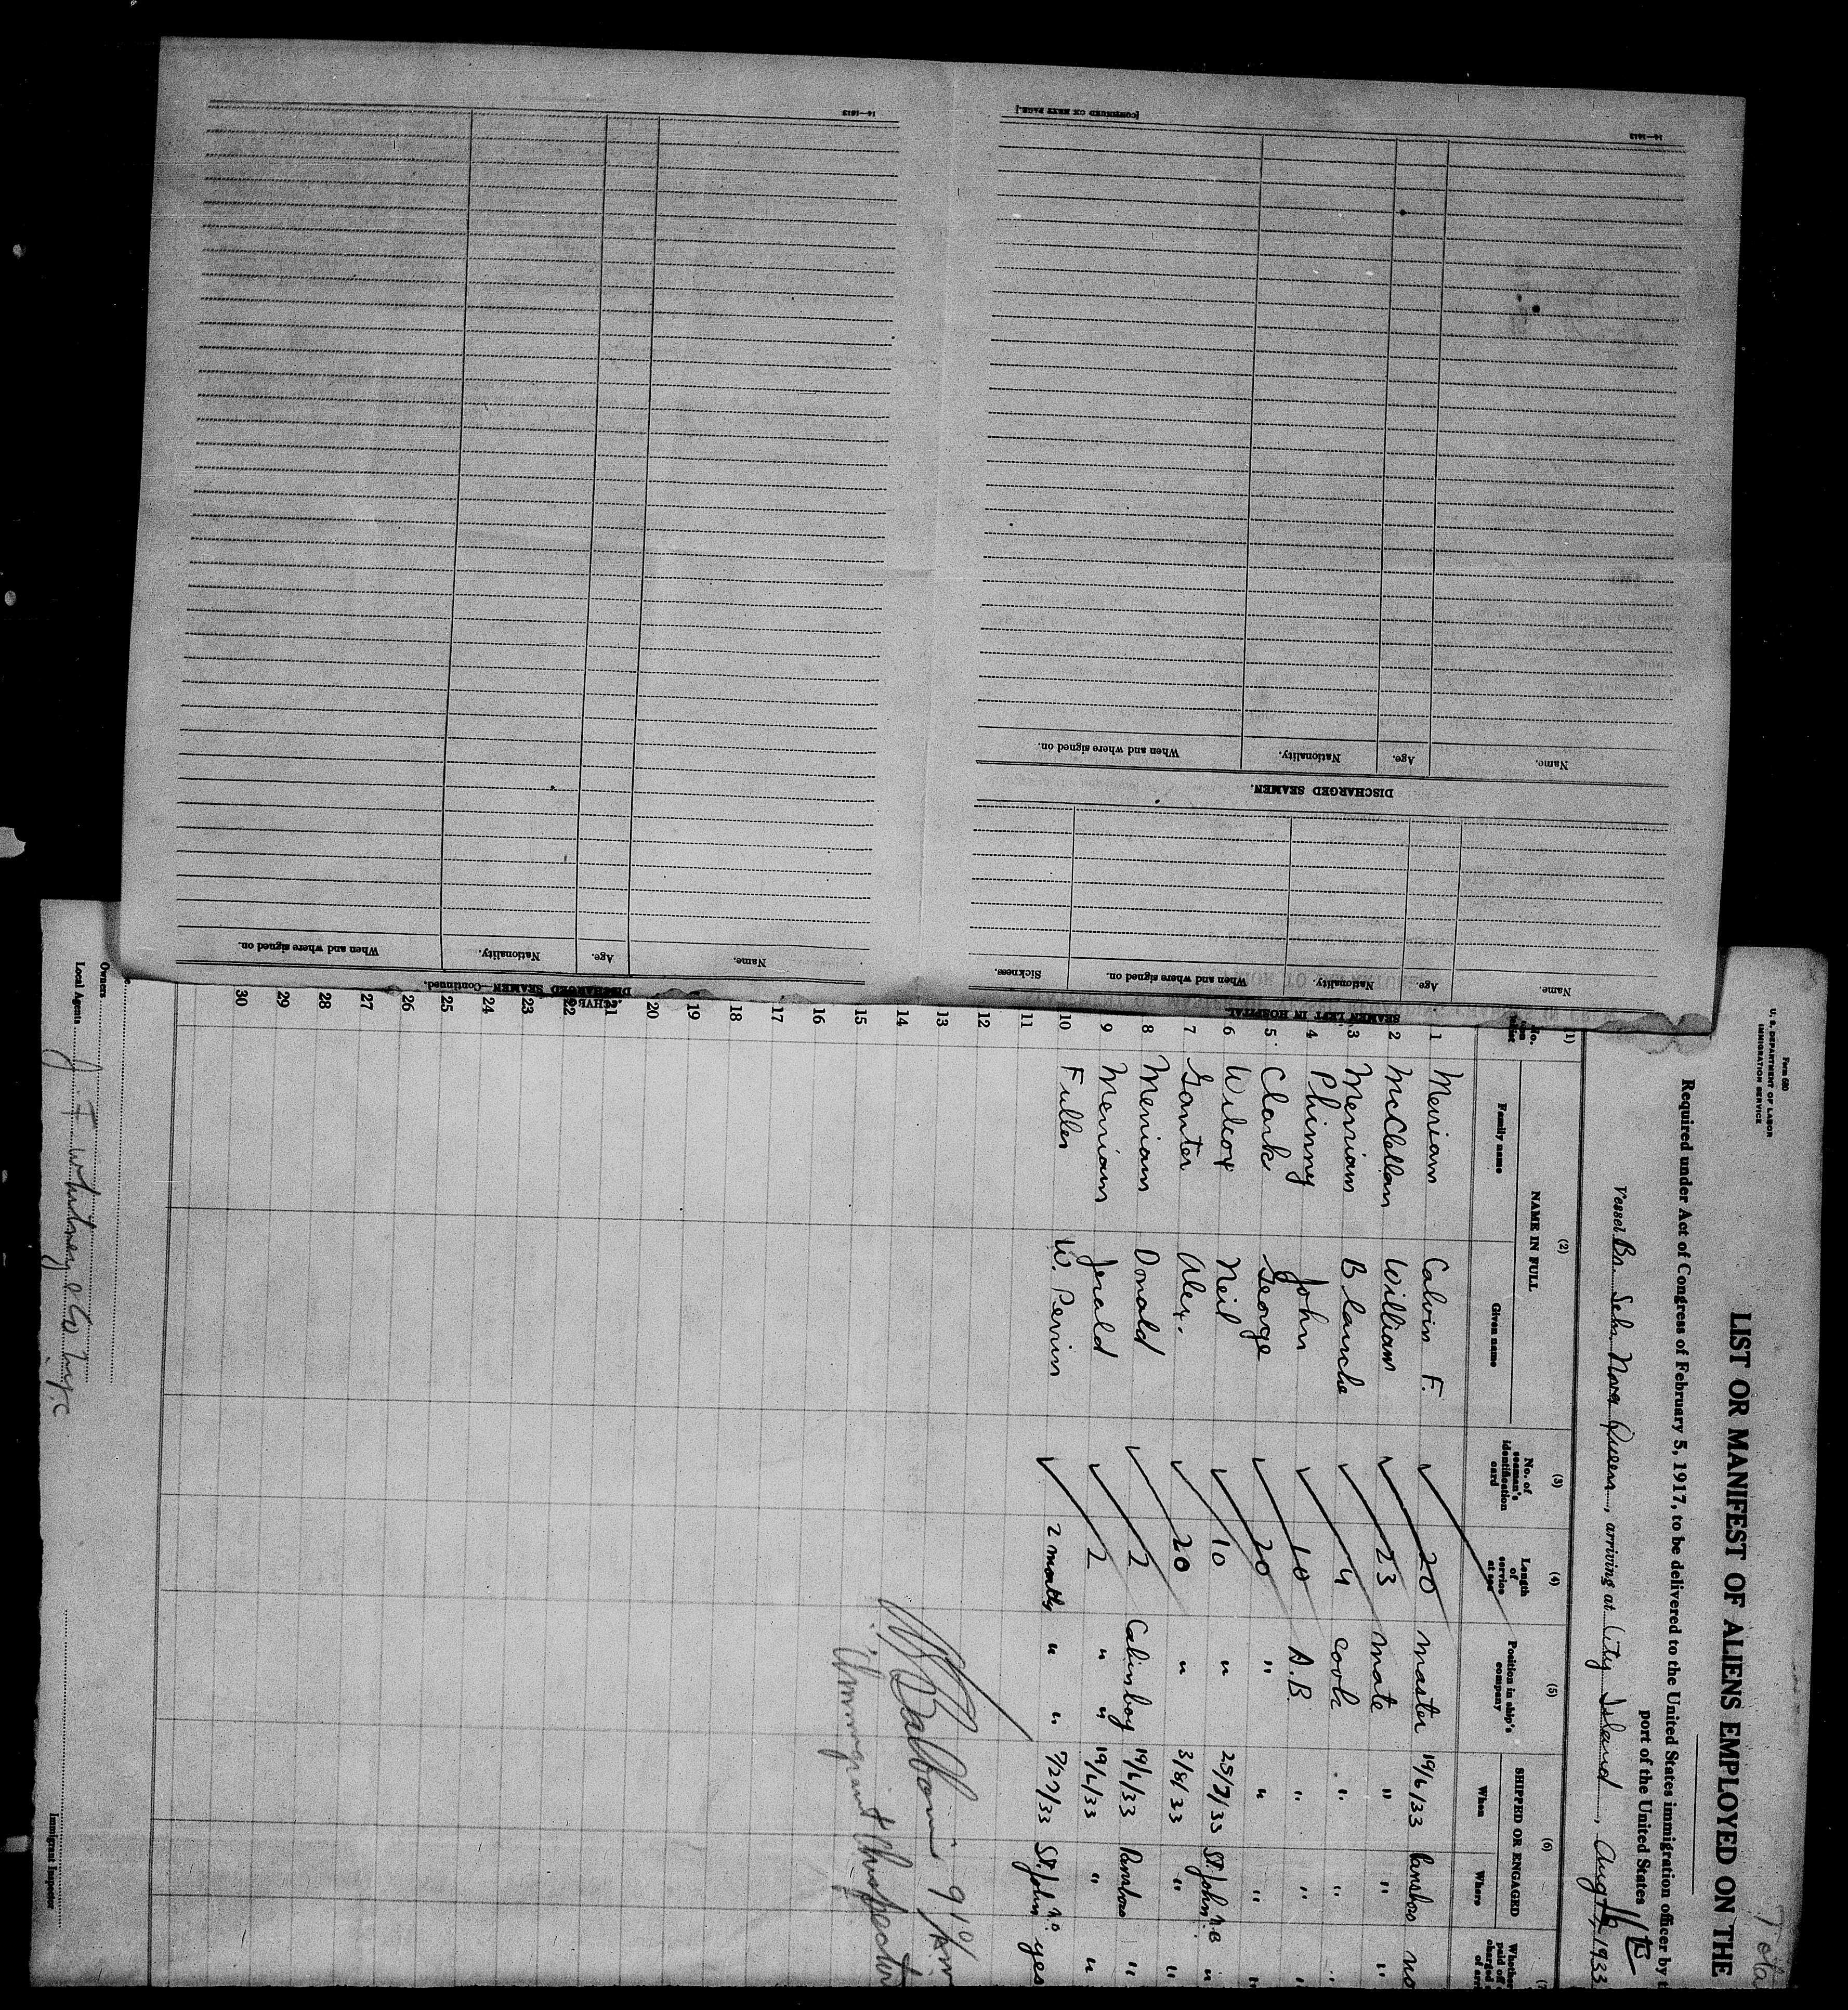 Form 680
U. S. DEPARTMENT OF LABOR
IMMIGRATION SERVICE
LIST OR MANIFEST OF ALIENS EMPLOYED ON THE
Required under Act of Congress of February 5, 1917, to be delivered to the United States immigration officer by
port of the United States
Vessel Br. Schr. Nova Queen, arriving at City Island, Aug 11th, 1933
(1) (2) (3) (4) (5) (6) (7
No. on list NAME IN FULL No. of seaman's identification card Length of service at sea Position in ship's company SHIPPED OR ENGAGED Whether
Family name Given name When Where
1 Merriam Calvin F. 20 master 19/6/33 Parrsboro no
2 McClellan William 23 mate " " "
3 Merriam Blanche 4 cook " " "
4 Phinney John 10 A.B. " " "
5 Clark George 20 " " " "
6 Wilcox Neil 10 " 25/7/33 St. John N.B "
7 Ganter Alex. 20 " 3/8/33 " "
8 Merriam Donald 2 Cabin boy 19/6/33 Parrsboro "
9 Merriam Jerald 2 " " 19/6/33 " "
10 Fuller W. Perrin 2 months " " 7/27/33 St. John yes
11
12
13
14
15
16
17
18
19
20
21
22
23
24
25
26
27
28
29
30
Immigrant Inspector
Owners
Local Agents J F Whitney & Co NYC
Immigrant Inspector
SEAMEN LEFT IN HOSPITAL
Name. Age. Nationality. When and where signed on. Sickness.
DISCHARGED SEAMEN.
Name. Age. Nationality. When and where signed on.
14—1613
[CONTINUED ON NEXT PAGE.]
DISCHARGED SEAMEN—Continued.
Name. Age. Nationality. When and where signed on.
14—1613